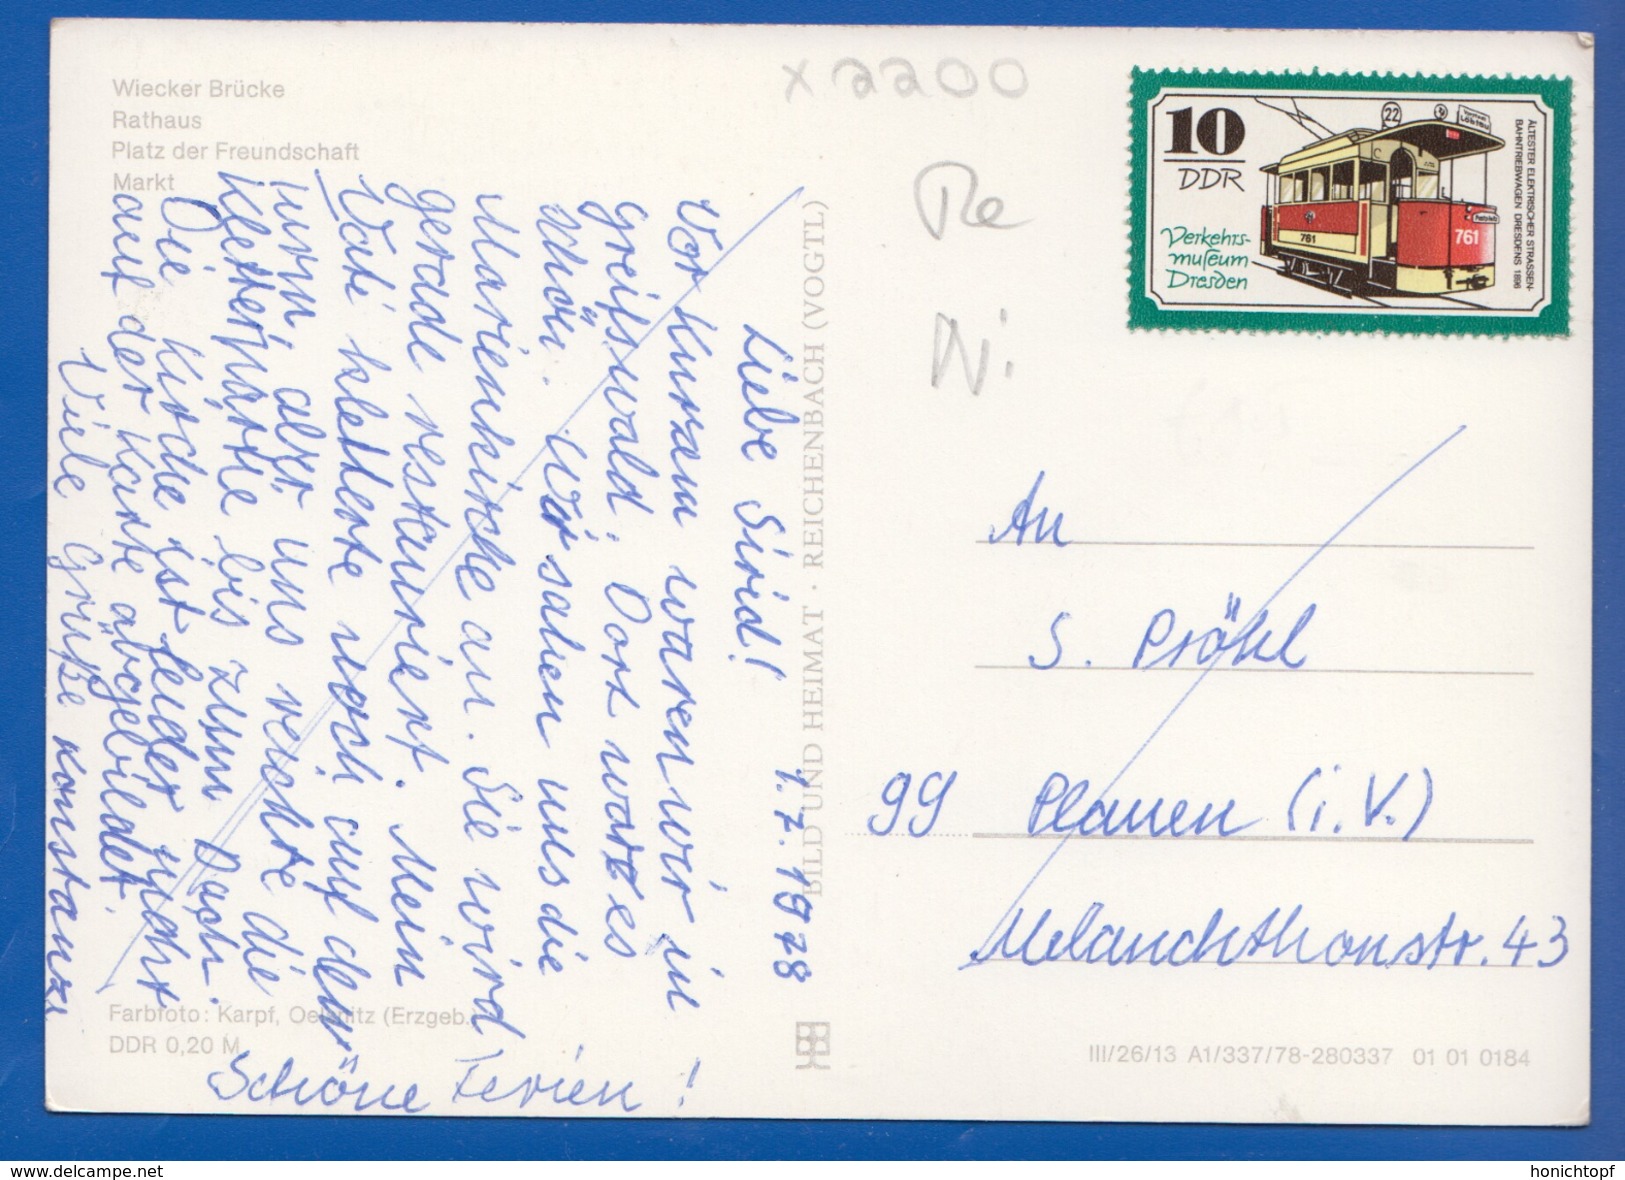 Wiecker Brücke
Rathaus
Platz der Freundschaft
Markt
7.7.1978
Liebe Sirid!
Vor kurzem waren wir in
Greifswald. Dort war es
schön. Wir sahen uns die
Marienkirche an. Sie wird
gerade restauriert. Mein
Vati kletterte noch auf den
Turm, aber uns reichte die
Kletterparte bis zum Dach.
Die Kirche ist leider nicht
auf der Karte abgebildet.
Viele Grüße Konstanze
Schöne Ferien!
Farbfoto: Karpf, Oelsnitz (Erzgeb.)
DDR 0,20 M
BILD UND HEIMAT · REICHENBACH (VOGTL)
x 2200
Re
Ni
10
DDR
Verkehrs-
museum
Dresden
22
Löbtau
761
761
ÄLTESTER ELEKTRISCHER STRASSEN-
BAHNTRIEBWAGEN DRESDENS 1896
An
S. Pröhl
99 Plauen (i. V.)
Melanchthonstr. 43
III/26/13 A1/337/78-280337 01 01 0184
www.delcampe.net
honichtopf